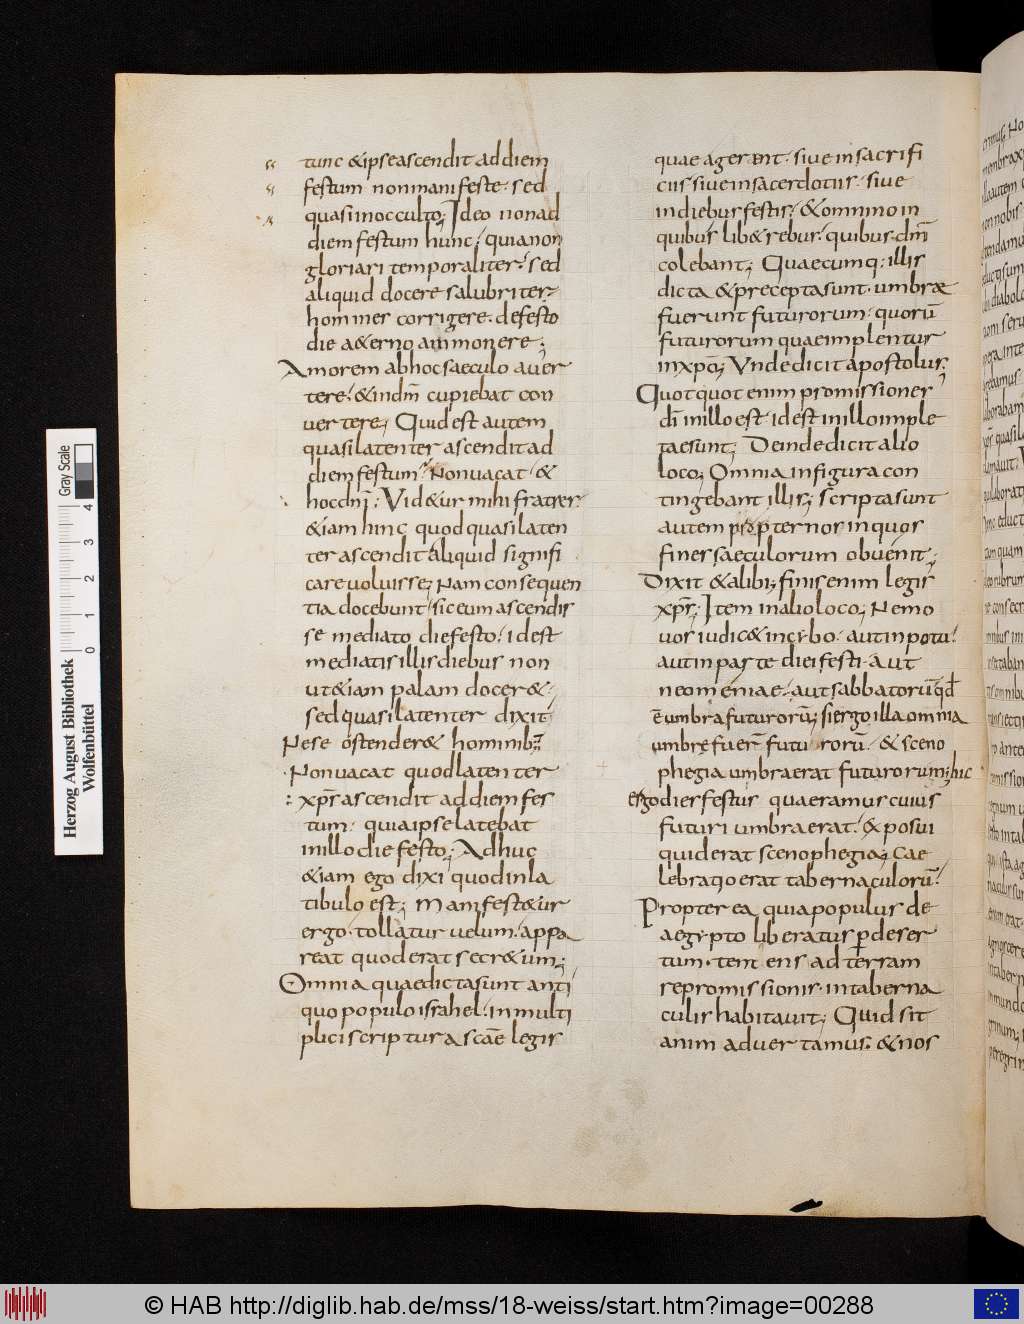 tunc &ipse ascendit ad diem
festum non manifeste· sed
quasi in occulto; Ideo non ad
diem festum hunc; quia non
gloriari temporaliter· sed
aliquid docere salubriter·
homines corrigere· de festo
die a&erno ammonere;
Amorem ab hoc saeculo aver
tere· & in dnm̄ cupiebat con
vertere; Quid est autem
quasi latenter ascendit ad
diem festum· Non vacat &
hoc dnī; Vid&ur mihi fratres·
&iam hinc quod quasi laten
ter ascendit aliquid signifi
care voluisse; Nam consequen
tia docebunt· sic eum ascendis
se mediato die festo· id est
mediatis illis diebus non
ut &iam palam doceret·
sed quasi latenter dixit
Ne se ostender& hominib;
Non vacat quod latenter
xp̄s ascendit ad diem fes
tum· quia ipse latebat
in illo die festo; Adhuc
&iam ego dixi quod in la
tibulo est; Manifest&ur
ergo· tollatur velum· appa
reat quod erat secr&um;
Omnia quae dicta sunt anti
quo populo israhel· in multi
plici scriptura scāe legis
quae agerent· sive in sacrifi
ciis sive in sacerdotiis· sive
in diebus festis· & omnino in
quibus lib& rebus· quibus dm̄
colebant; Quaecumq; illis
dicta & precepta sunt· umbrae
fuerunt futurorum· quorū
futurorum quae implentur
in xpō; Unde dicit apostolus·
Quotquot enim promissiones
dī in illo est· id est in illo imple
tae sunt; Deinde dicit alio
loco; Omnia in figura con
tingebant illis; scripta sunt
autem propter nos in quos
fines saeculorum obvenit;
Dixit & alibi; finis enim legis
xp̄s; Item in alio loco; Nemo
vos iudic& in cybo· aut in potu·
aut in parte diei festi· aut
neomeniae· aut sabbatorū qđ
ē umbra futurorū; si ergo illa omnia
umbrę fuer̄ futurorū· & sceno
phegia umbra erat futurorum; hic
ergo dies festus quaeramus cuius
futuri umbra erat· & posui
quid erat scenophegia; Cae
lebratio erat tabernaculorū·
Propterea quia populus de
aegypto liberatus p̄ deser
tum· tendens ad terram
repromissionis· in taberna
culis habitavit; Quid sit
animadvertamus· & nos
Herzog August Bibliothek
Wolfenbüttel
Gray Scale
0 1 2 3 4
© HAB http://diglib.hab.de/mss/18-weiss/start.htm?image=00288